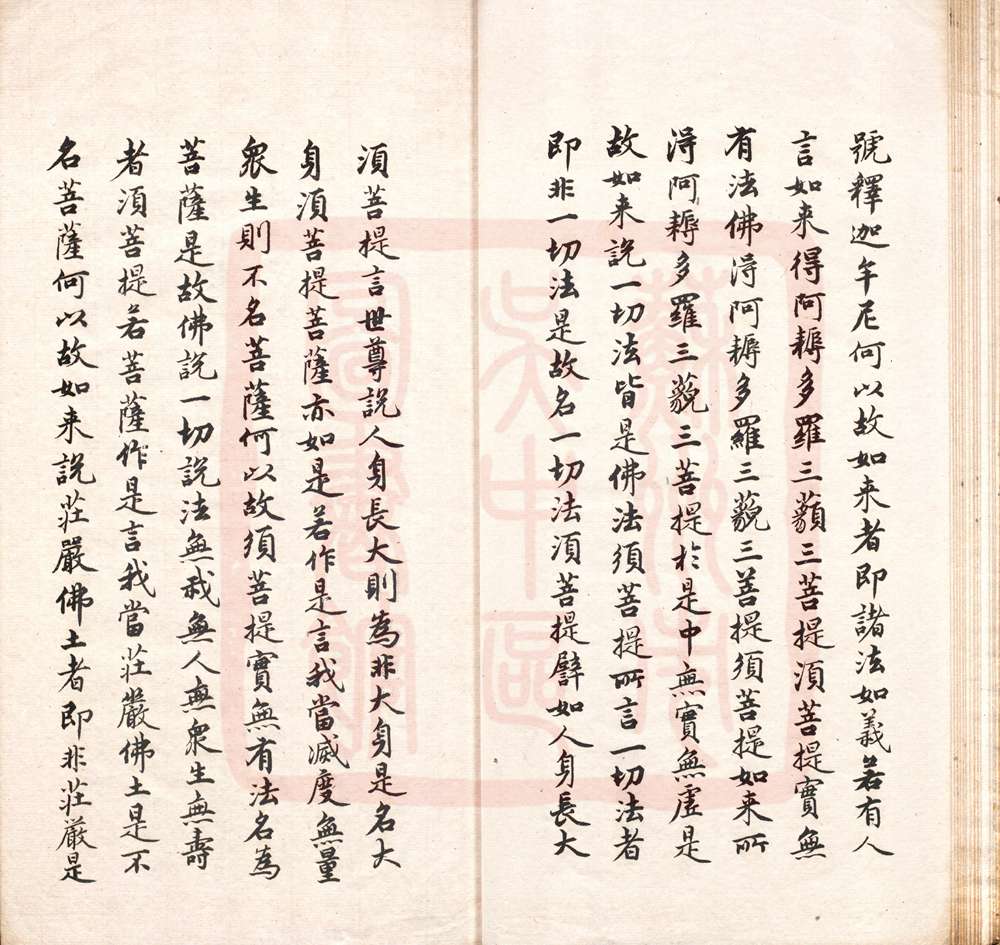 號釋迦牟尼何以故如来者即諸法如義若有人
言如来得阿耨多羅三藐三菩提須菩提實無
有法佛得阿耨多羅三藐三菩提須菩提如来所
得阿耨多羅三藐三菩提於是中無實無虛是
故如来説一切法皆是佛法須菩提所言一切法者
即非一切法是故名一切法須菩提譬如人身長大
須菩提言世尊説人身長大則為非大身是名大
身須菩提菩薩亦如是若作是言我當滅度無量
衆生則不名菩薩何以故須菩提實無有法名為
菩薩是故佛説一切説法無我無人無衆生無壽
者須菩提若菩薩作是言我當莊嚴佛土是不
名菩薩何以故如来説莊嚴佛土者即非莊嚴是
蘇州市
吳中區
圖書館